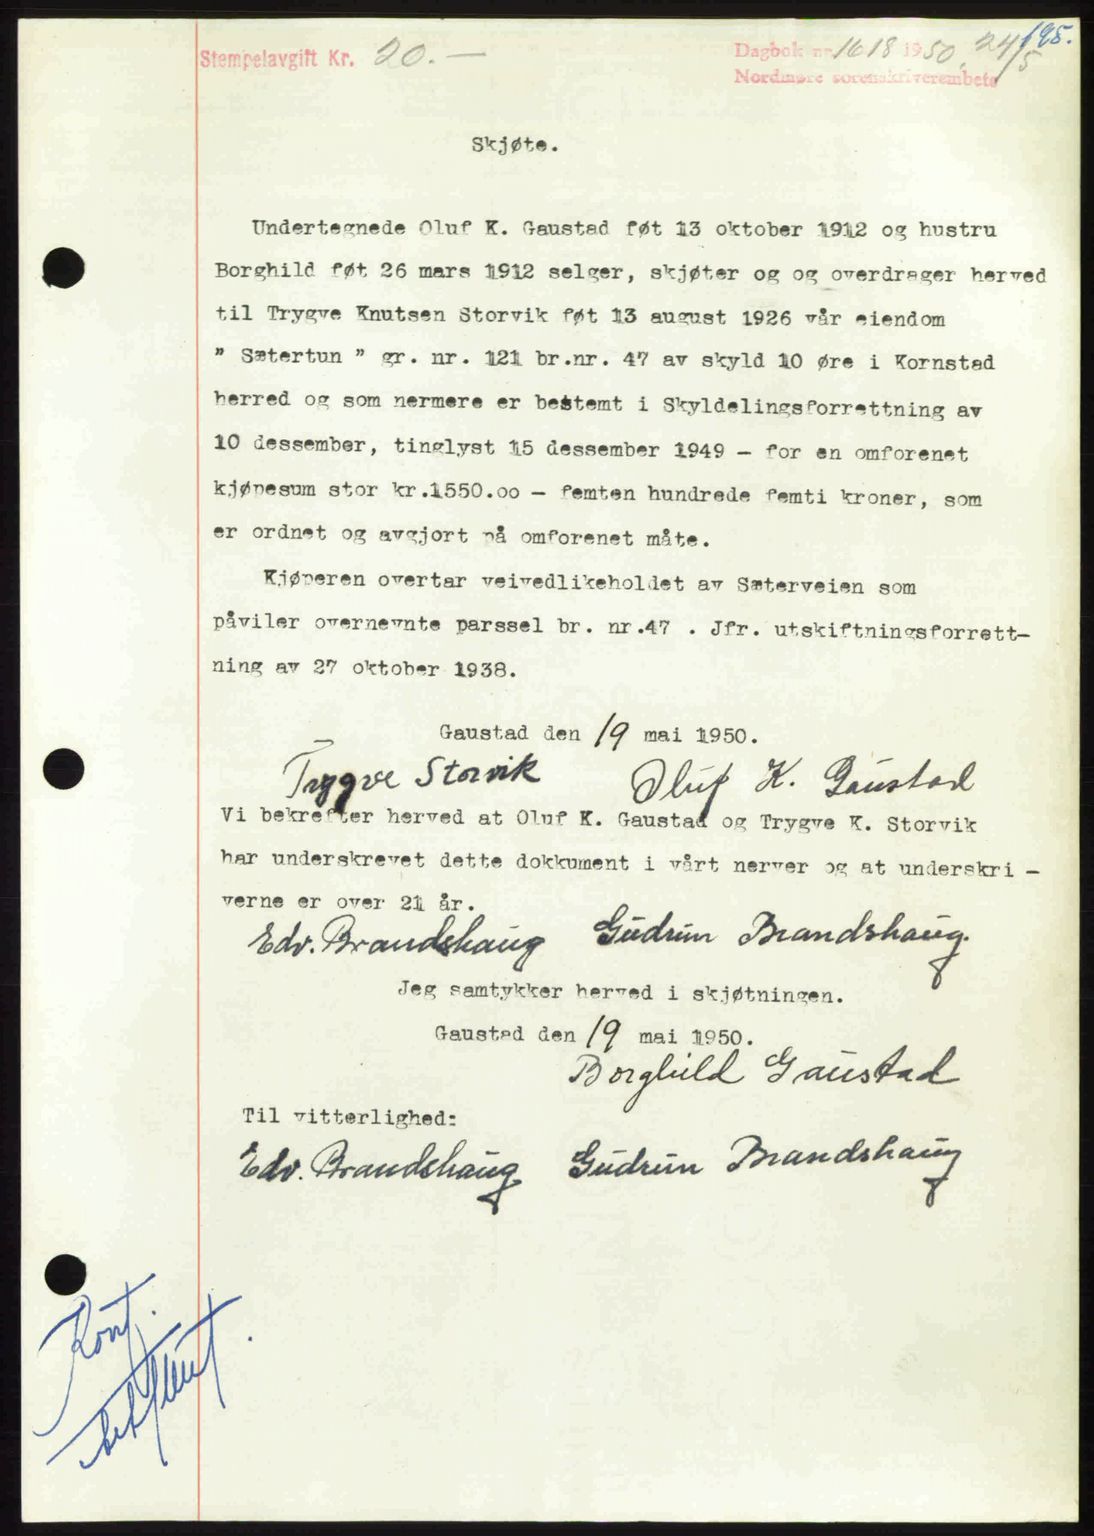 195.
Stempelavgift Kr. 20.—
Dagbok nr. 1618 1950, 24/5
Nordmøre sorenskriverembete
Skjøte.
Undertegnede Oluf K. Gaustad føt 13 oktober 1912 og hustru
Borghild føt 26 mars 1912 selger, skjøter og og overdrager herved
til Trygve Knutsen Storvik føt 13 august 1926 vår eiendom
" Sætertun " gr. nr. 121 br.nr. 47 av skyld 10 øre i Kornstad
herred og som nermere er bestemt i Skyldelingsforrettning av
10 dessember, tinglyst 15 dessember 1949 - for en omforenet
kjøpesum stor kr.1550.oo - femten hundrede femti kroner, som
er ordnet og avgjort på omforenet måte.
Kjøperen overtar veivedlikeholdet av Sæterveien som
påviler overnevnte parssel br. nr.47 . Jfr. utskiftningsforrett-
ning av 27 oktober 1938.
Gaustad den 19 mai 1950.
Trygve Storvik Oluf K. Gaustad
Vi bekrefter herved at Oluf K. Gaustad og Trygve K. Storvik
har underskrevet dette dokkument i vårt nerver og at underskri -
verne er over 21 år.
Edv. Brandshaug Gudrun Brandshaug.
Jeg samtykker herved i skjøtningen.
Gaustad den 19 mai 1950.
Borghild Gaustad
Til vitterlighed:
Edv. Brandshaug Gudrun Brandshaug
Kont.